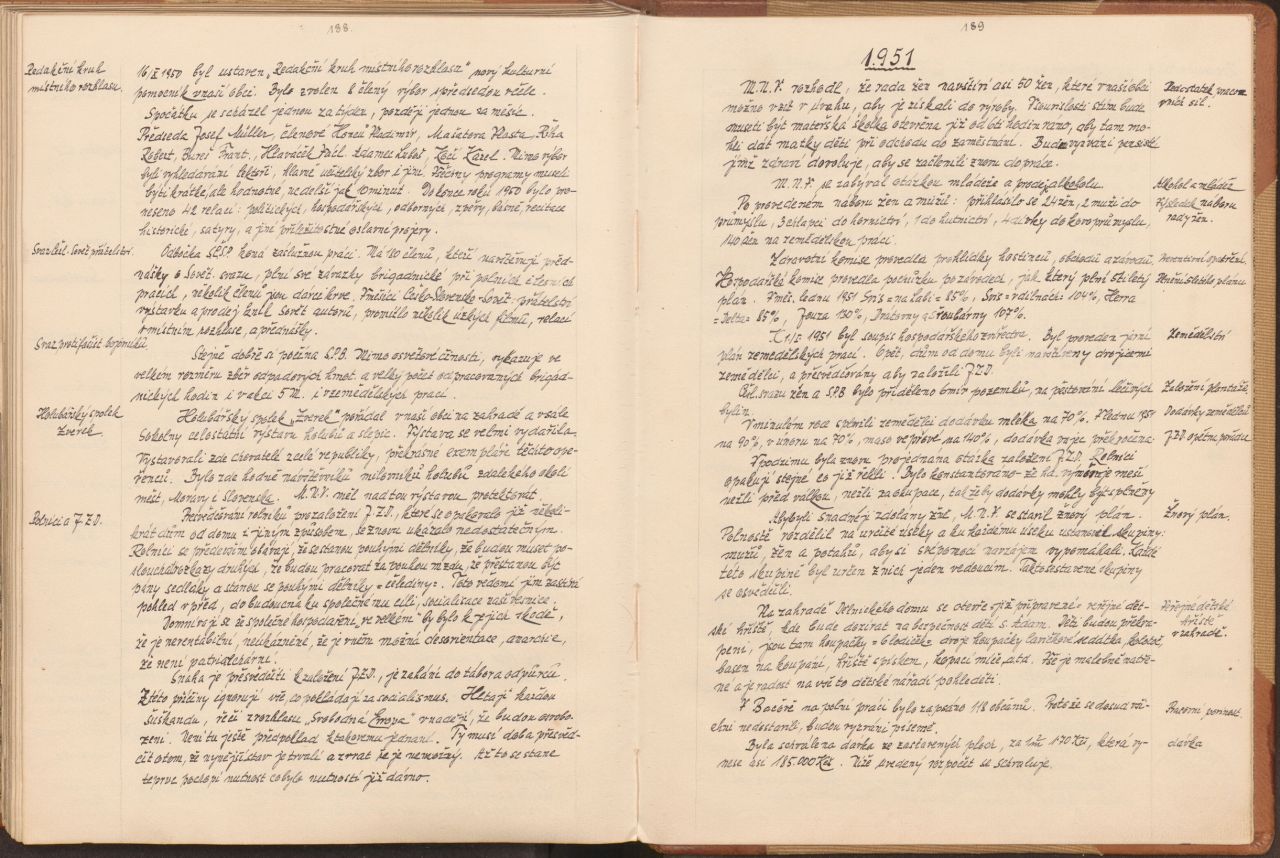 188.
Redakční kruh
místního rozhlasu.
16/II 1950 byl ustaven „Redakční kruh místního rozhlasu" nový kulturní
pomocník v naší obci. Bylo zvolen 8 člený výbor s předsedou včele.
Spočátku se scházel jednou za týden, později jednou za měsíc.
Předseda Josef Müller, členové Horců Vladimír, Mašatova Vlasta, Říha
Robert, Bureš Frant., Hlaváček Pavl. Adamec Luboš, Kočí Karel. Mimo výbor
byli vyhledáváni lektoři, hlavně učitelský zbor i jiní. Všechny programy museli
býti krátké, ale hodnotné, ne delší jak 10 minut. Do konce roku 1950 bylo pro-
neseno 42 relací: politických, hospodářských, odborných, zpěvy, básně, recitace
historické, satyry, a jiné příležitostné oslavné projevy.
Svaz čsl. Sovět. přátelství.
Odbočka SČSP. koná záslužnou práci. Má 180 členů, kteří navštěvují před-
nášky o Sovět. svazu, plní své závazky brigádnické při polních i lesních
pracích, několik členů jsou dárci krve. Umístící Česko-Slovensko-Sovět. přátelství
výstavku a prodej knih Sovět autorů, promítlo několik úzkých filmů, relací
v místním rozhlase, a přednášky.
Svaz protifašist. bojovníků
Stejně dobře si počíná S.P.B. Mimo osvětové činnosti, vykazuje ve
velkém rozměru zběr odpadových hmot a velký počet odpracovaných brigád-
nických hodin i v akci 5 M. i v zemědělských prací.
Holubářský spolek
Zverek.
Holubářský spolek „Zverek" pořádal v naší obci na zahradě a v sále
Sokolny celostátní výstavu holubů a slepic. Výstava se velmi vydařila.
Vystavovali zde chovatelé z celé republiky, překrásné exempláře těchto ope-
řenců. Bylo zde hodně návštěvníků milovníků holubů z dalekého okolí
měst, Moravy i Slovenska. M.N.V. měl nad tou výstavou protektorát.
Rolníci a J.Z.D.
Přesvědčování rolníků pro založení J.Z.D., které se opakovalo již několi-
krát dům od domu i jiným způsobem, se znovu ukázalo nedostatečným.
Rolníci se především obávají, že se stanou pouhými dělníky, že budou muset po-
slouchat rozkazy druhých, že budou pracovat za pouhou mzdu, že přestanou být
pány sedláky a stanou se pouhými dělníky = čeledíny =. Toto vědomí jim zastírá
pohled v před, do budoucna ku společnému cíli, socialisace naší vesnice.
Domnívají se že společné hospodaření „ve velkém" by bylo k jejich škodě,
že je nerentabilní, neukázněné, že je v něm možná desorientace, anarchie,
že není patriarchární.
Snaha je přesvědčiti k založení J.Z.D., je zahání do tábora odpůrců.
Z této příčiny ignorují vše, co pokládají za socialismus. Hltají každou
šuškandu, řeči z rozhlasu „Svobodná Evropa" v naději, že budou osvobo-
zeni. Není tu ještě předpoklad k takovému jednání. Ty musí doba přesvěd-
čit o tom, že nynější stav je trvalý a zvrat že je nemožný. Až to se stane
teprve pochopí nutnost co bylo nutností již dávno.
189
1951
M.N.V. rozhodl, že rada žen navštíví asi 50 žen, které v naší obci
možno vzít v úvahu, aby je získali do výroby. V souvislosti s tím bude
museti být mateřská školka otevřena již od 6ti hodin ráno, aby tam mo-
hli dát matky děti při odchodu do zaměstnání. Budou vyzváni pensisté
jimž zdraví dovoluje, aby se začlenili znovu do práce.
Nedostatek pracov-
ních sil.
M.N.V. se zabýval otázkou mládeže a prodej alkoholu.
Alkohol a mládež
Po provedeném náboru žen a mužů: přihlásilo se 24 žen, 2 muži do
průmyslu, 3 chlapci do hornictví, 1 do hutnictví, 4 dívky do kovoprůmyslu,
140 žen na zemědělskou práci.
Výsledek náboru
rady žen.
Zdravotní komise provedla prohlídky hostinců, obchodů a závodů.
Preventivní opatření.
Hospodářská komise provedla pochůzku po závodech, jak který plní 5ti letý
plán. V měs. lednu 1951 Svis = na Labi = 85%, Svis = v dílnách = 104%, Herra
= Delta = 85%, Fouza 130%, Drátovny a Šroubárny 107%.
Plnění 5ti letého plánu.
K 1/I 1951 byl soupis hospodářského zvířectva. Byl proveden jarní
plán zemědělských prací. Opět, dům od domu byli navštíveny dvojicemi
zemědělci, a přesvědčovány aby založili J.Z.D.
Zemědělství
Čsl. svazu žen a SPB bylo přiděleno 6 měr pozemků, na pěstování léčivých
bylin.
Založení plantáže.
V minulém roce splnili zemědělci dodávku mléka na 70%. V lednu 1951
na 90%, v únoru na 70%, maso vepřové na 140%, dodávka vajec překročena.
Dodávky zemědělců
V podzimu byla znovu projednána otázka založení J.Z.D. Rolníci
opakují stejné co již řekli. Bylo konstantováno že ha. výnos je menší
nežli před válkou, nežli za okupace, tak že by dodávky mohly být splněny
JZD opětný pořadu.
Aby byli snadněji zdolány žně, M.N.V. sestavil žnový plán.
Polnosti rozdělil na určité úseky a ku každému úseku ustanovil skupiny:
mužů, žen a potahů, aby si svépomocí navzájem vypomáhali. Každé
této skupině byl určen z nich jeden vedoucím. Takto sestavené skupiny
se osvědčili.
Žňový plán.
Na zahradě Dělnického domu se otevře = již připravené = veřejné dět-
ské hřiště, kde bude dozírat na bezpečnost dětí s. Adam. Děti budou překva-
peni, jsou tam houpačky = lodičk = dvoje houpačky lavičkové sedátka, kolotoč,
basen na koupání, hřiště s pískem, kopací míče, atd. Vše je malebně natře-
né a je radost na vše to dětské nářadí pohleděti.
Veřejné dětské
hřiště
v zahradě.
V Bacově na polní práci bylo zapsáno 118 občanů. Protože se dosud vši-
chni nedostavili, budou vyzváni písemě.
Pracovní povinnost.
Byla schválena dávka ze zastavených ploch, za 1m² 1.70 Kčs, která vy-
nese asi 185.000 Kčs. Níže uvedený rozpočet se schvaluje.
dávka